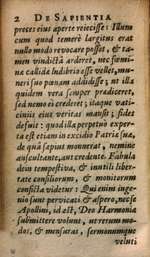 2 DE SAPIENTIA
preces eius aperte reiecisse: Illum
cum quod temerè largitus erat
nullo modo revocare posset, & ta-
men vindictâ arderet, nec fœmi-
na callida ludibrio esse vellet, mu-
neri suo pœnam addidisse; ut illa
quidem vera semper prædiceret,
sed nemo ei crederet; itaque vati-
ciniis eius veritas mansit; fides
defuit: quod illa perpetuò exper-
ta est etiam in excidio Patriæ suæ,
de quâ sæpius monuerat, nemine
auscultante, aut credente. Fabula
de intempestiva, & inutili liber-
tate consiliorum, & monitorum
conficta videtur: Qui enim inge-
nio sunt pervicaci & aspero, nec se
Apollini, id est, Deo Harmoniæ
submittere volunt, ut rerum mo-
dos, & mensuras, sermonumque
veluti